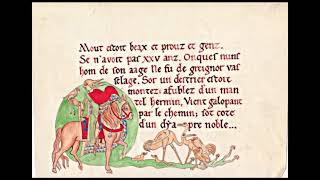 Mout estoit beax et prouz et genz.
Se n'avoit pas xxv anz. Onques nuns
hom de son aage Ne fu de greignor vas
selage. Sor un destrier estoit
montez: afublez d'un man
tel hermin, Vient galopant
par le chemin; tot coté
d'un dyapre noble...